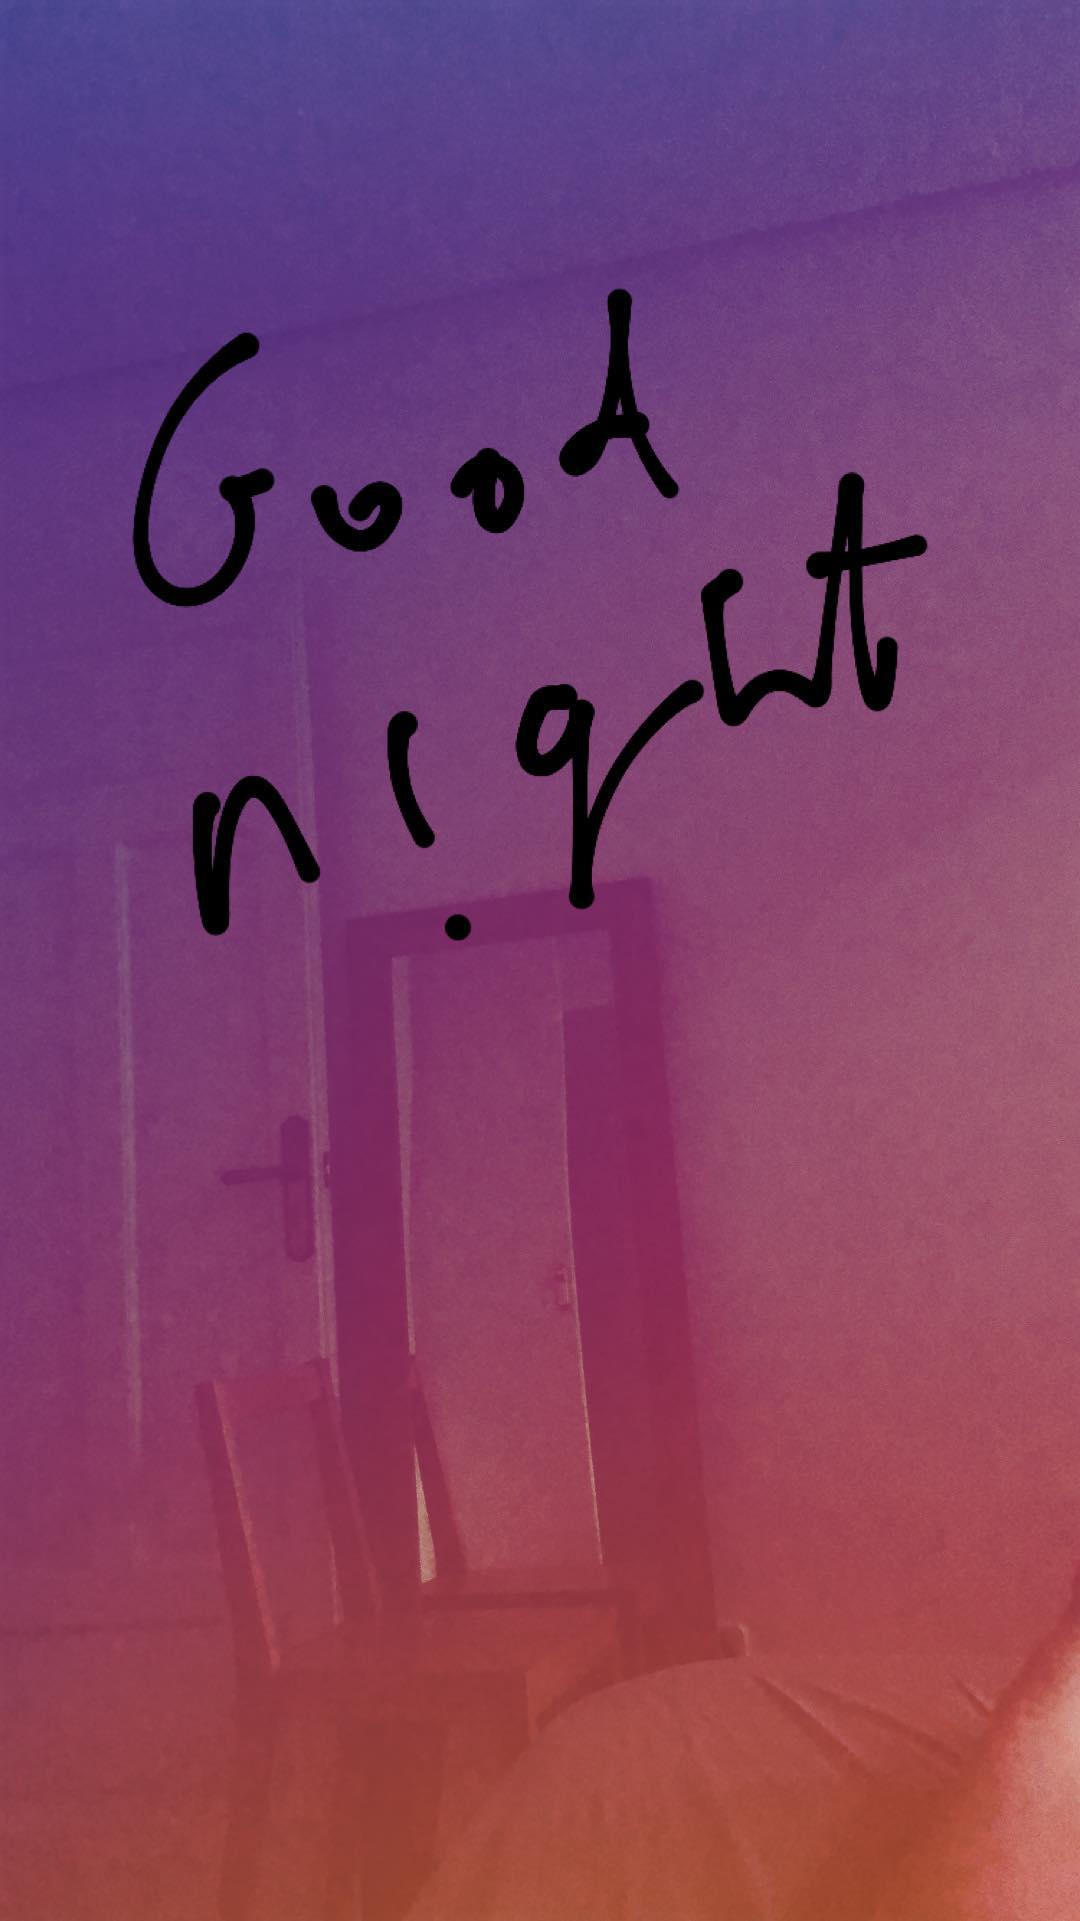 Good
night